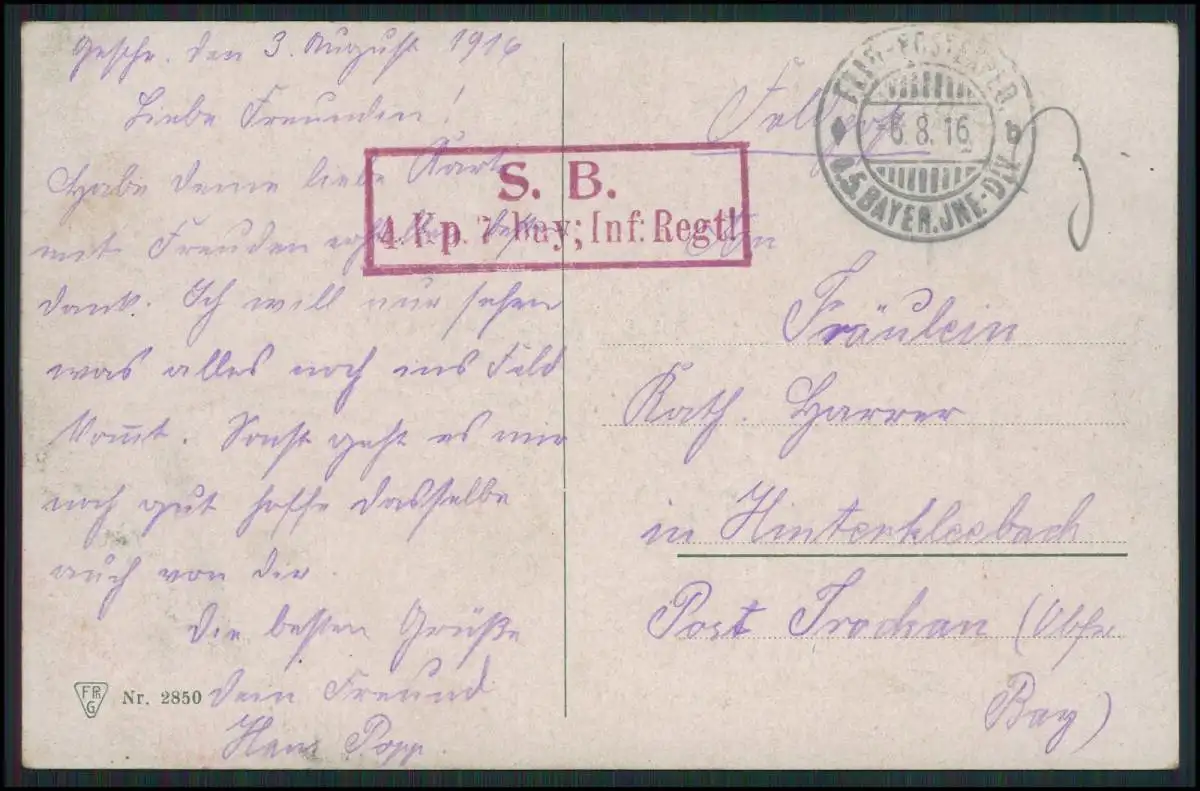 Geschr. den 3. August 1916
Liebe Freundin!
Habe deine liebe Karte
mit Freuden erhalten besten
dank. Ich will nur sehen
was alles noch ins Feld
kom̅t. Sonst geht es mir
noch gut hoffe dasselbe
auch von dir.
Die besten Grüße
dein Freund
Hans Popp.
FPG
Nr. 2850
S. B.
4. Kp. 7. bay; Inf: Regt!
Feldpost
FELD-POSTEXPED.
6.8.16.
b
D.5.BAYER.JNF.-DIV.
An
Fräulein
Kath. Harrer
in Hinterkleebach
Post Trockau (Obfr.
Bay)